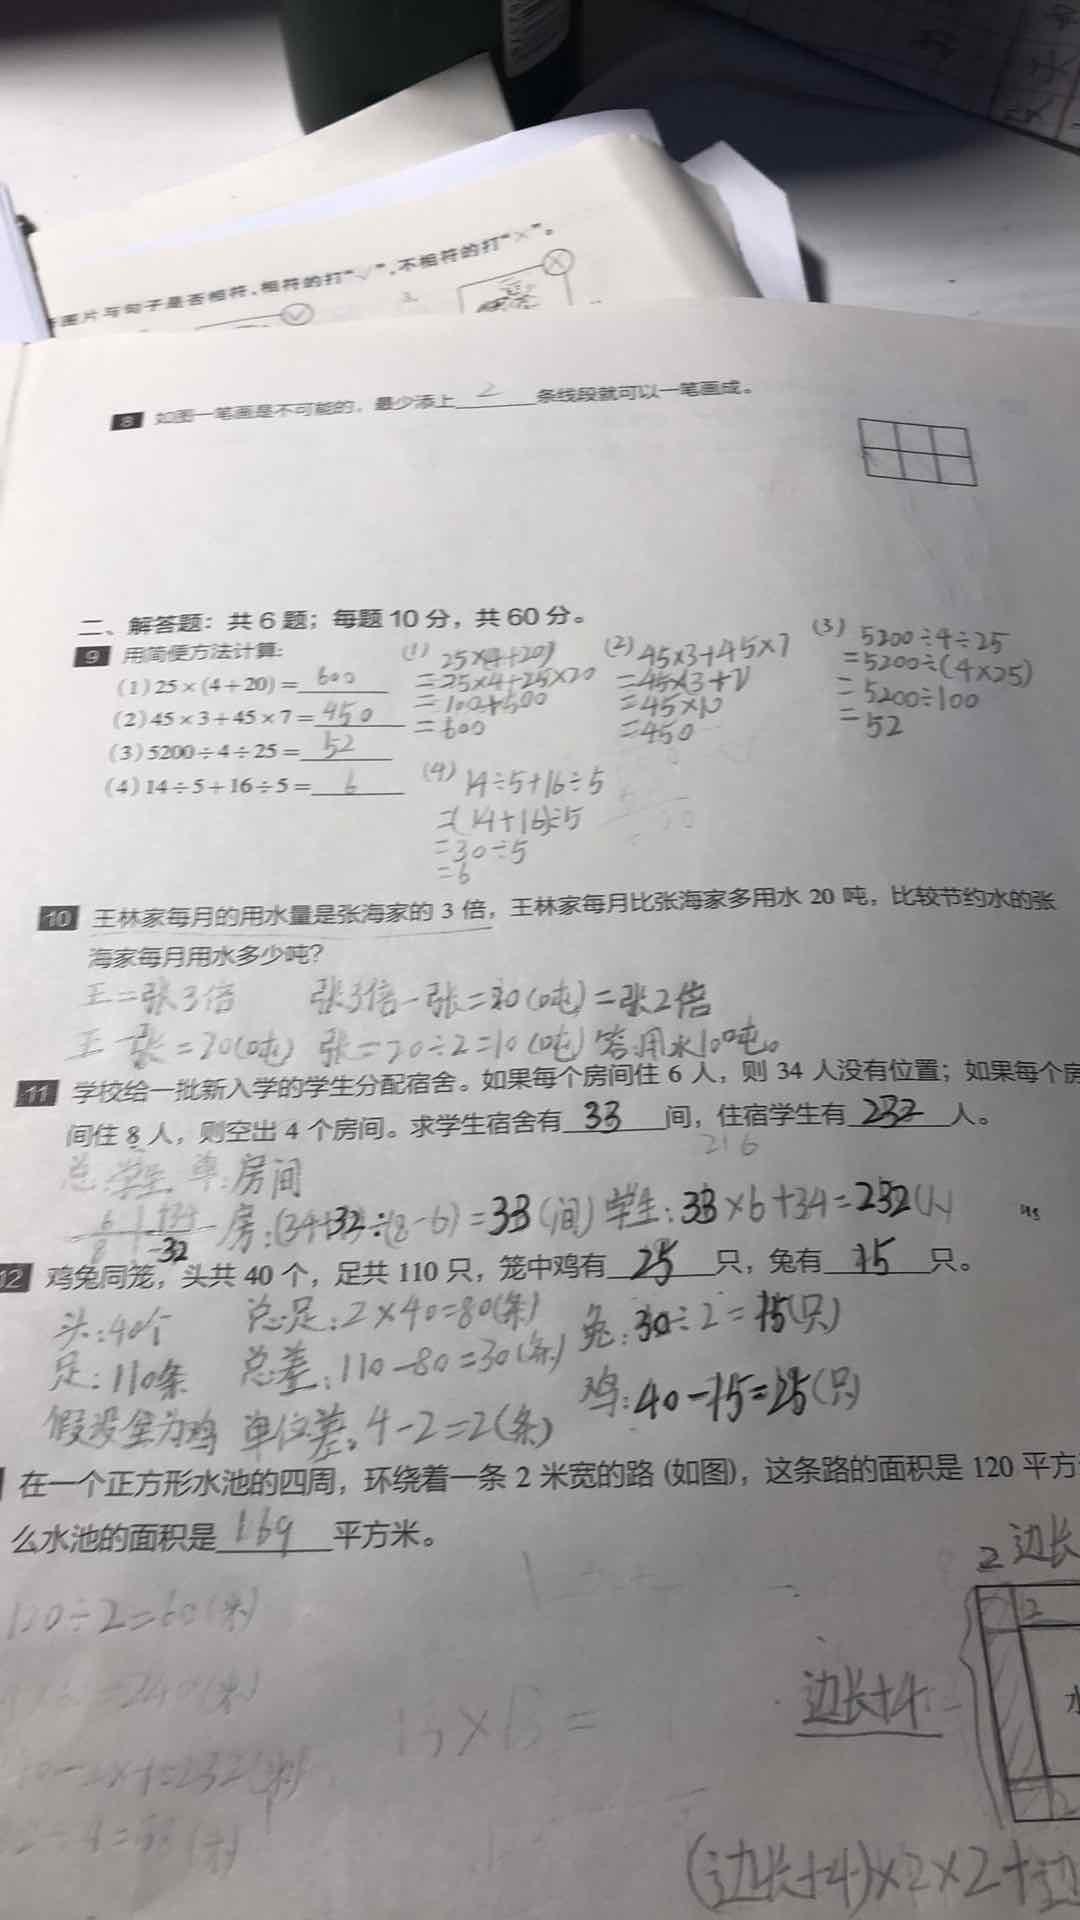 图片与句子是否相符,相符的打“√”,不相符的打“×”。
3.
8 如图一笔画是不可能的,最少添上 2 条线段就可以一笔画成。
二、解答题:共 6 题;每题 10 分,共 60 分。
9 用简便方法计算:
(1) 25×(4+20)= 600
(2) 45×3+45×7= 450
(3) 5200÷4÷25= 52
(4) 14÷5+16÷5= 6
(1) 25×(4+20)
=25×4+25×20
=100+500
=600
(2) 45×3+45×7
=45×(3+7)
=45×10
=450
(3) 5200÷4÷25
=5200÷(4×25)
=5200÷100
=52
(4) 14÷5+16÷5
=(14+16)÷5
=30÷5
=6
10 王林家每月的用水量是张海家的 3 倍,王林家每月比张海家多用水 20 吨,比较节约水的张
海家每月用水多少吨?
王=张3倍 张3倍-张=20(吨)=张2倍
王-张=20(吨) 张=20÷2=10(吨) 答:用水10吨。
11 学校给一批新入学的学生分配宿舍。如果每个房间住 6 人,则 34 人没有位置;如果每个房
间住 8 人,则空出 4 个房间。求学生宿舍有 33 间,住宿学生有 232 人。
216
总:学生 单:房间
6 +34
8 -32
房:(34+32)÷(8-6)=33(间) 学生:33×6+34=232(人)
12 鸡兔同笼,头共 40 个,足共 110 只,笼中鸡有 25 只,兔有 15 只。
头:40个 总足:2×40=80(条) 兔:30÷2=15(只)
足:110条 总差:110-80=30(条) 鸡:40-15=25(只)
假设全为鸡 单位差:4-2=2(条)
在一个正方形水池的四周,环绕着一条 2 米宽的路(如图),这条路的面积是 120 平方
么水池的面积是 169 平方米。
120÷2=60(米)
2 边长
2
边长+4
(边长+4)×2×2+边